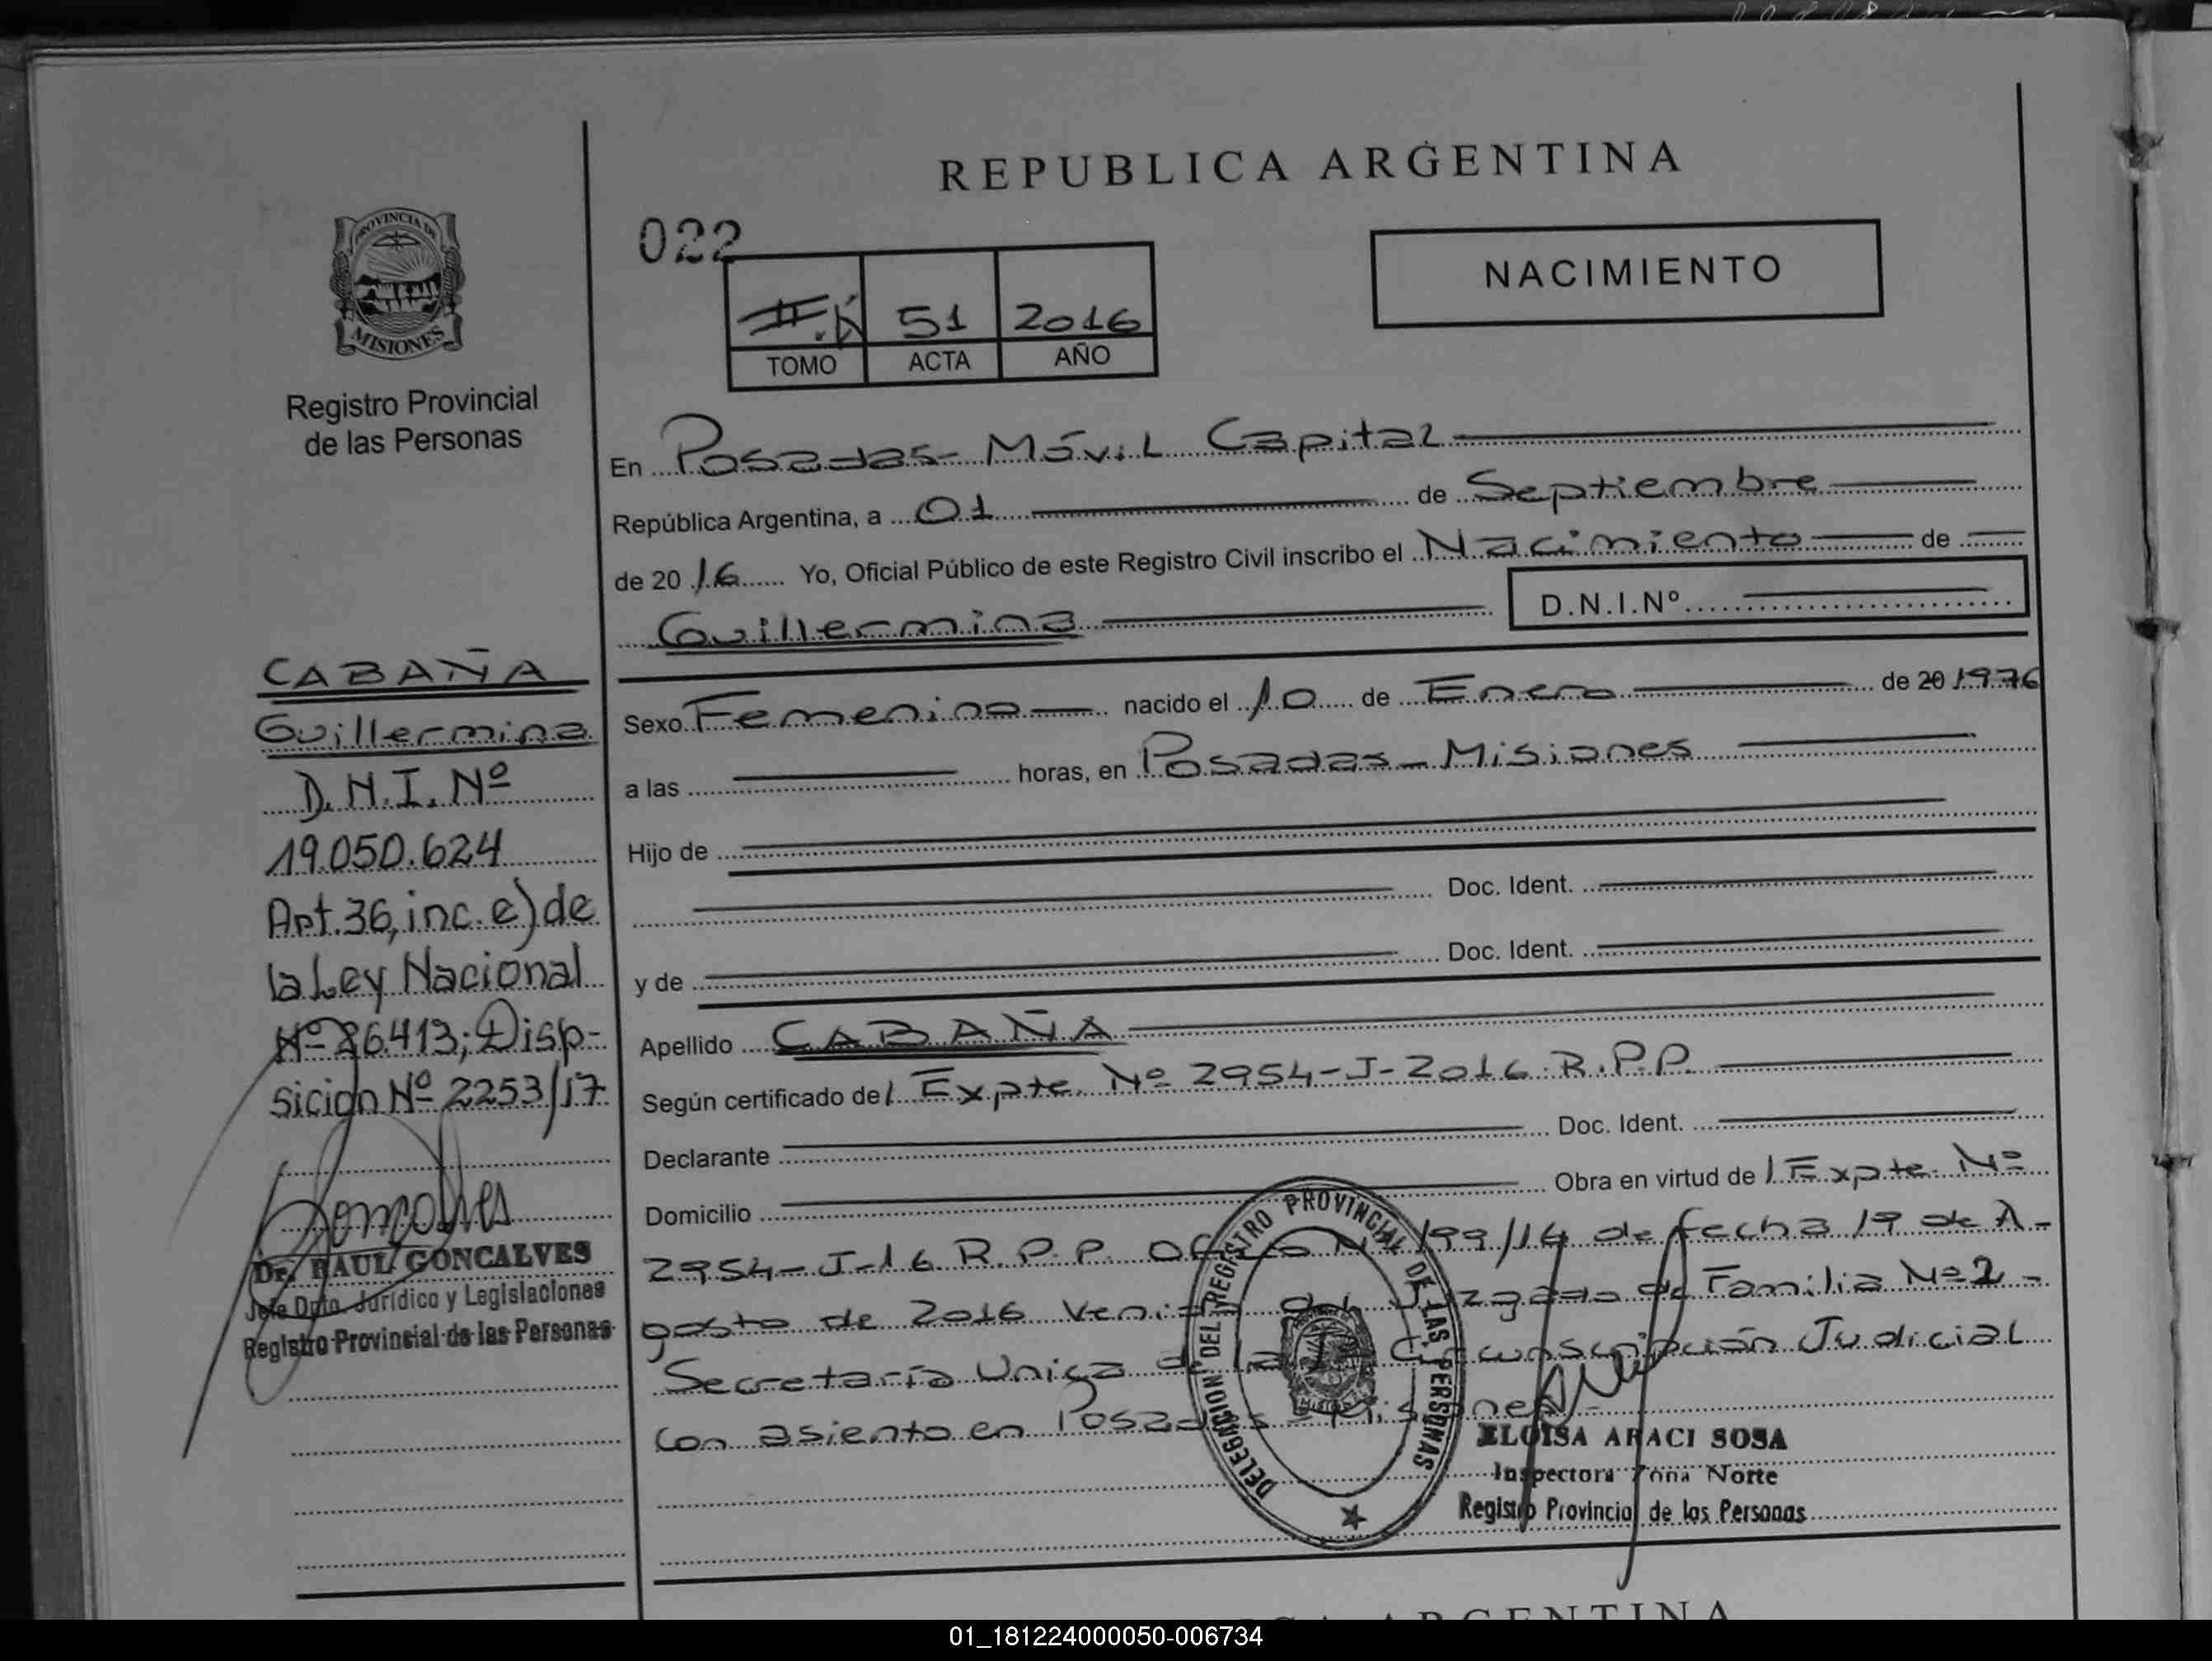 REPUBLICA ARGENTINA
PROVINCIA DE
MISIONES
Registro Provincial
de las Personas
022
51 2016
TOMO ACTA AÑO
NACIMIENTO
En Posadas- Móvil Capital
República Argentina, a 01 de Septiembre
de 20 16 Yo, Oficial Público de este Registro Civil inscribo el Nacimiento de
Guillermina D.N.I.Nº
Sexo Femenino nacido el 10 de Enero de 20 1976
a las horas, en Posadas - Misiones
Hijo de
Doc. Ident.
y de Doc. Ident.
Apellido CABAÑA
Según certificado de/ Expte. Nº 2954-J-2016. R.P.P.
Declarante Doc. Ident.
Domicilio Obra en virtud de / Expte. Nº
2954-J-16 R.P.P. Oficio Nº 199/14 de fecha 19 de A-
gosto de 2016 venido del Juzgado de Familia Nº2 -
Secretaría Unica de la Circunscripción Judicial
con asiento en Posadas - Misiones.-
DELEGACION DEL REGISTRO PROVINCIAL DE LAS PERSONAS
ELOISA ARACI SOSA
Inspectora Zona Norte
Registro Provincial de las Personas
CABAÑA
Guillermina
D.N.I. Nº
19.050.624
Art.36, inc. e) de
la Ley Nacional
Nº 26413; Disp-
sicion Nº 2253/17
Dr. RAUL GONCALVES
Jefe Dpto. Jurídico y Legislaciones
Registro Provincial de las Personas
ARGENTINA
01_181224000050-006734